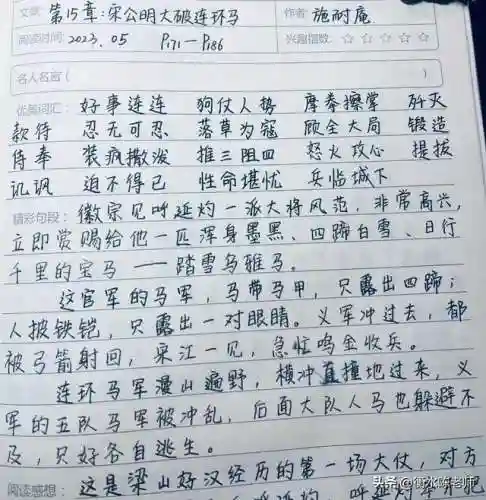 文章: 第15章:宋公明大破连环马 作者: 施耐庵
阅读时间: 2023.05 P171—P186 兴趣指数: ☆ ☆ ☆ ☆ ☆
名人名言 ( )
优美词汇: 好事连连 狗仗人势 摩拳擦掌 歼灭
款待 忍无可忍 落草为寇 顾全大局 锻造
侍奉 装疯撒泼 推三阻四 怒火攻心 提拔
讥讽 迫不得已 性命堪忧 兵临城下
精彩句段: 徽宗见呼延灼一派大将风范,非常高兴,
立即赏赐给他一匹浑身墨黑、四蹄白雪、日行
千里的宝马——踏雪乌雅马。
这官军的马军,马带马甲,只露出四蹄;
人披铁铠,只露出一对眼睛。义军冲过去,都
被弓箭射回,宋江一见,急忙鸣金收兵。
连环马军漫山遍野,横冲直撞地过来,义
军的五队马军被冲乱,后面大队人马也躲避不
及,只好各自逃生。
阅读感想: 这是梁山好汉经历的第一场大仗,对方
呼延
头条 @衡水陈老师